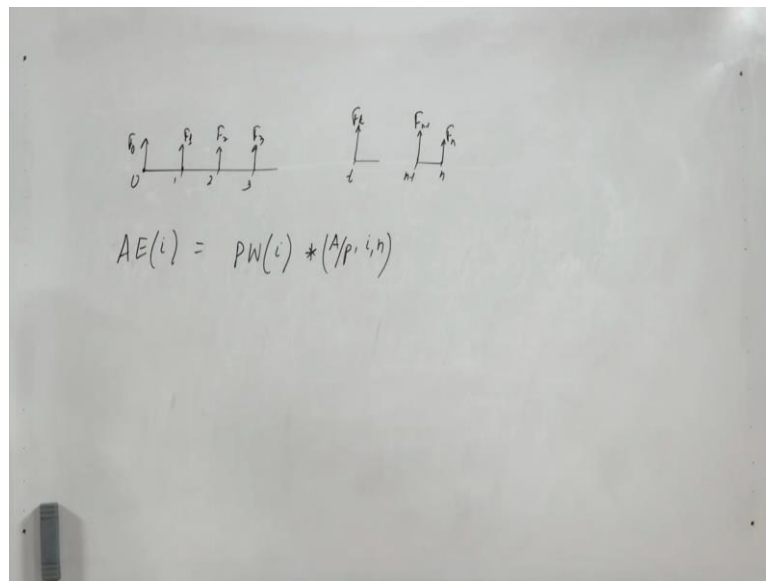 F0 F1 F2 F3 Ft Fn-1 Fn
0 1 2 3 t n-1 n
AE(i) = PW(i) * (A/p, i, n)